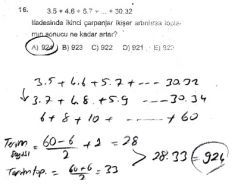 16. 3.5 + 4.6 + 5.7 + ... + 30.32
ifadesinde ikinci çarpanlar ikişer artırılırsa toplamın sonucu ne kadar artar?
A) 924 B) 923 C) 922 D) 921 E) 920
3.5 + 4.6 + 5.7 + --- 30.32
3.7 + 4.8 + 5.9 --- 30.34
6 + 8 + 10 + --- + 60
Terim Sayısı = 60-6/2 + 1 = 28
28.33 = 924
= 60+6/2 = 33